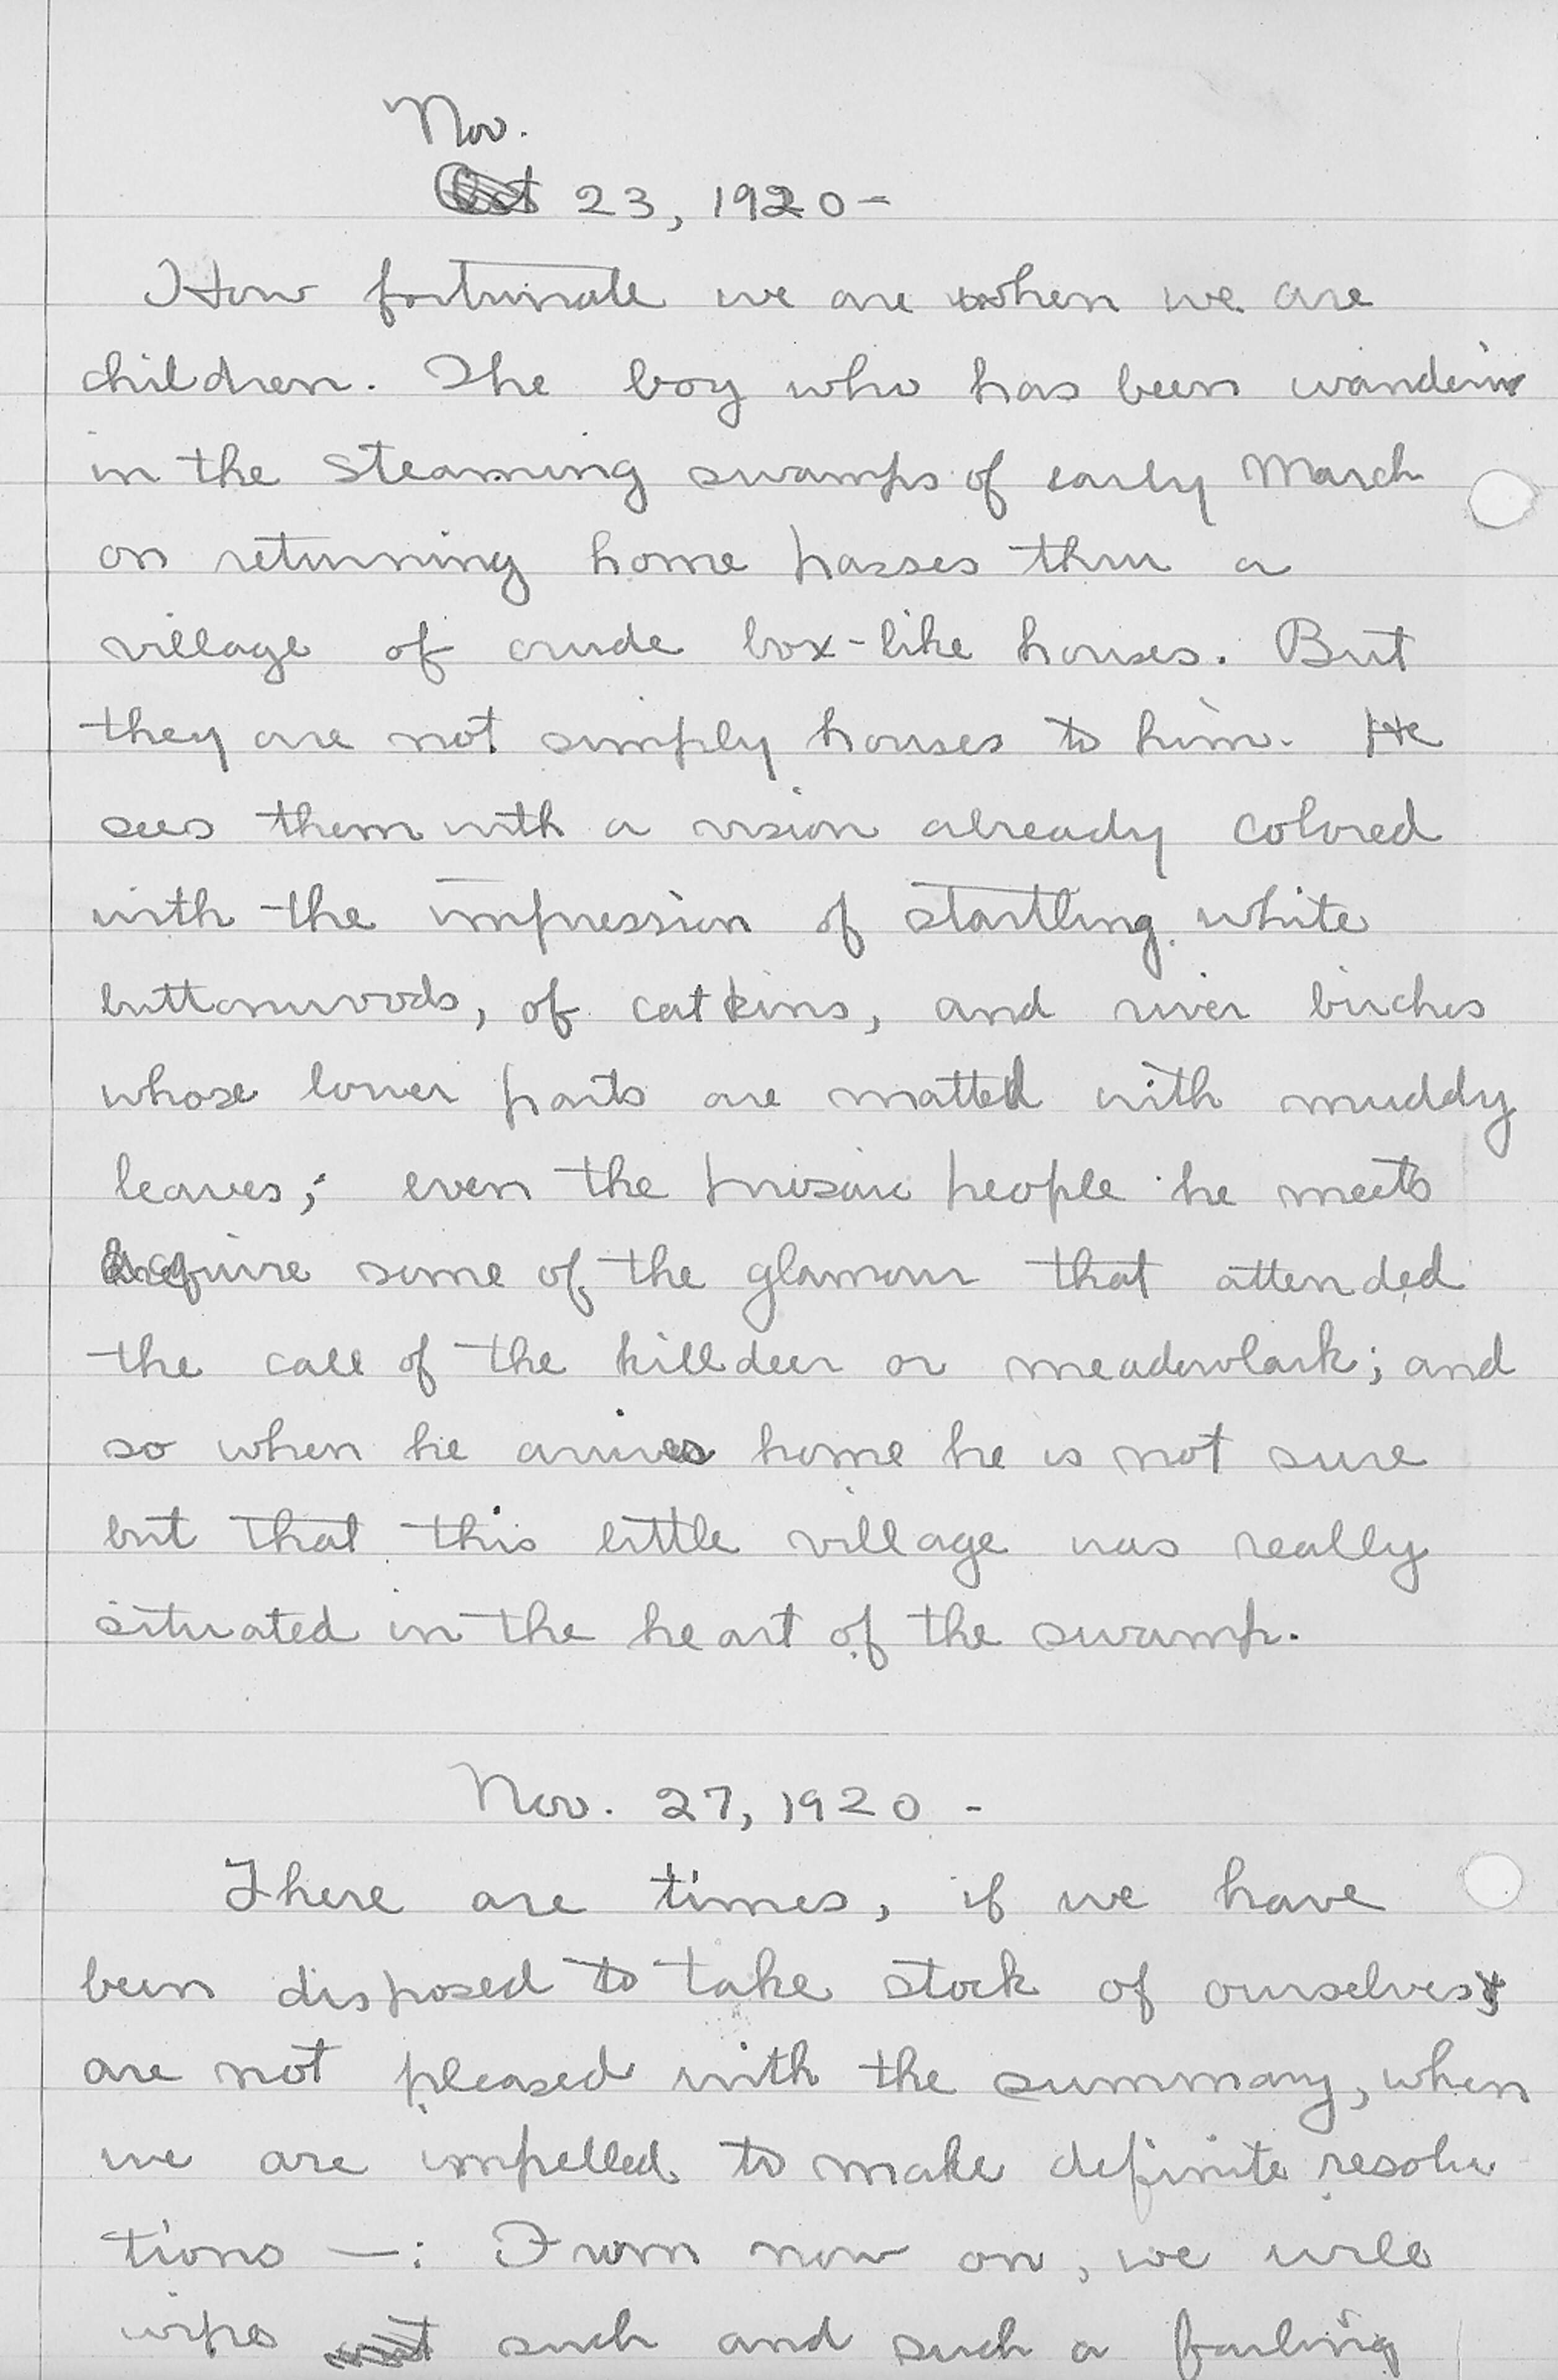 Nov.
Oct 23, 1920-
How fortunate we are when we are
children. The boy who has been wanderin
in the steaming swamps of early March
on returning home passes thru a
village of crude box-like houses. But
they are not simply houses to him. He
sees them with a vision already colored
with the impression of startling white
buttonwoods, of catkins, and river birches
whose lower parts are matted with muddy
leaves; even the prosaic people he meets
acquire some of the glamour that attended
the call of the killdeer or meadowlark; and
so when he arrives home he is not sure
but that this little village was really
situated in the heart of the swamp.
Nov. 27, 1920 -
There are times, if we have
been disposed to take stock of ourselves &
are not pleased with the summary, when
we are impelled to make definite resolu
tions —: From now on, we will
wipe out such and such a failing